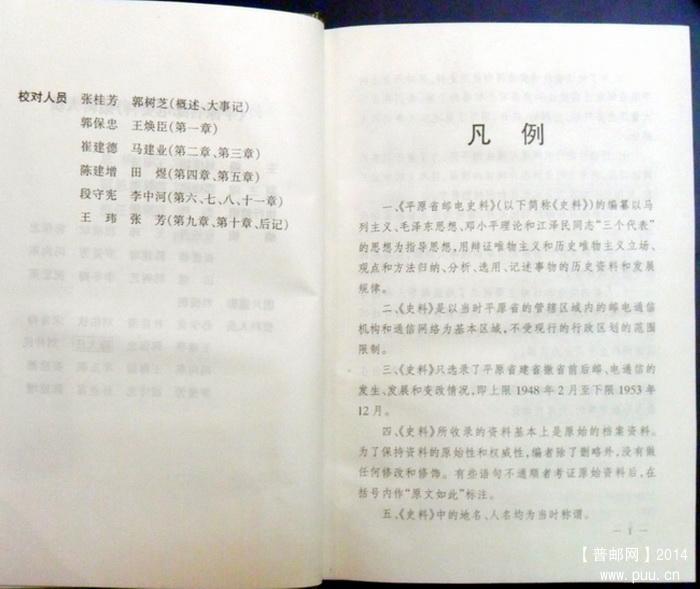 校对人员 张桂芳 郭树芝(概述、大事记)
郭保忠 王焕臣(第一章)
崔建德 马建业(第二章、第三章)
陈建增 田 煜(第四章、第五章)
段守宪 李中河(第六、七、八、十一章)
王 玮 张 芳(第九章、第十章、后记)
凡 例
一、《平原省邮电史料》(以下简称《史料》)的编纂以马
列主义、毛泽东思想、邓小平理论和江泽民同志“三个代表”
的思想为指导思想,用辩证唯物主义和历史唯物主义立场、
观点和方法归纳、分析、选用、记述事物的历史资料和发展
规律。
二、《史料》是以当时平原省的管辖区域内的邮电通信
机构和通信网络为基本区域,不受现行的行政区划的范围
限制。
三、《史料》只选录了平原省建省撤省前后邮、电通信的
发生、发展和变改情况,即上限1948年2月至下限1953年
12月。
四、《史料》所收录的资料基本上是原始的档案资料。
为了保持资料的原始性和权威性,编者除了删略外,没有做
任何修改和修饰。有些语句不通顺者考证原始资料后,在
括号内作“原文如此”标注。
五、《史料》中的地名、人名均为当时称谓。
— 1 —
【普邮网】2014
www.puu.cn